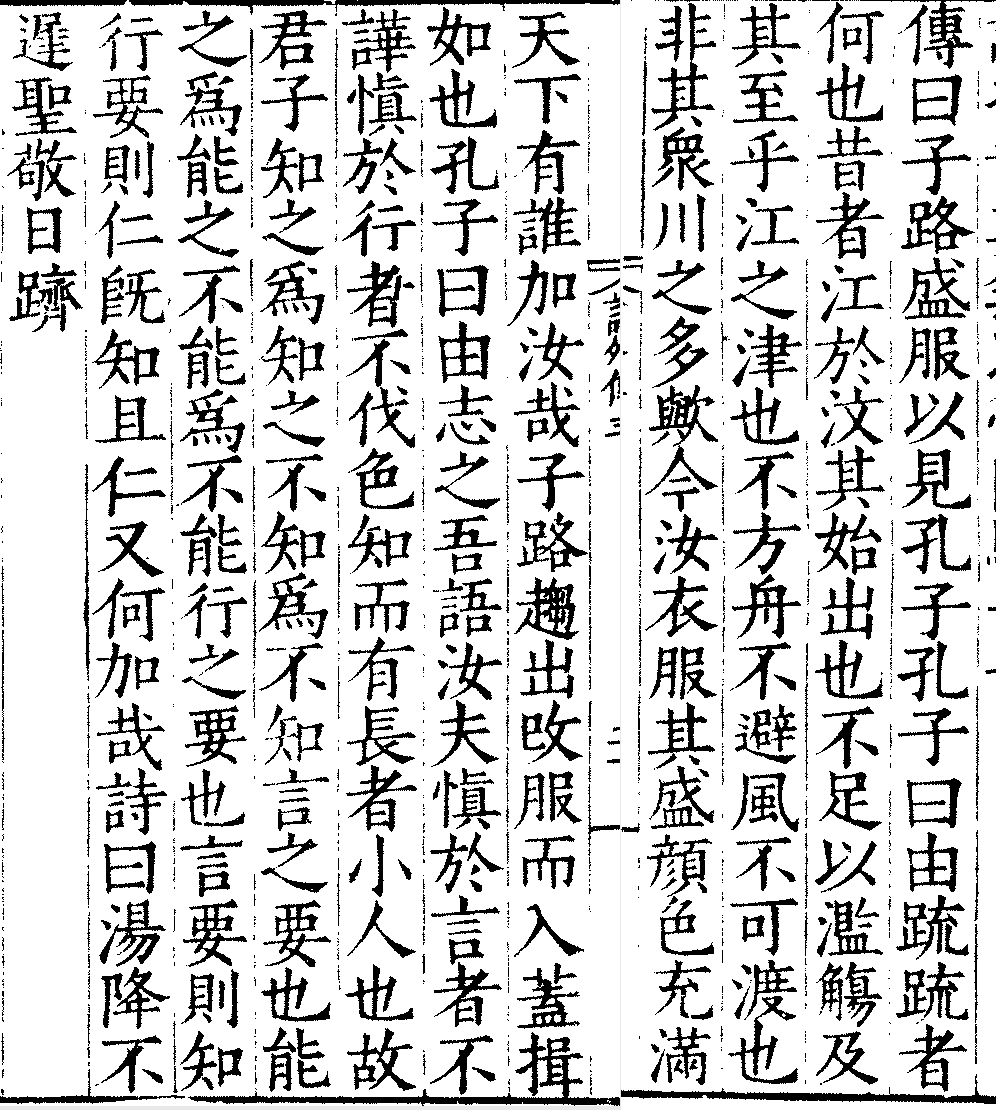 傳曰子路盛服以見孔子孔子曰由疏疏者
何也昔者江於汶其始出也不足以濫觴及
其至乎江之津也不方舟不避風不可渡也
非其衆川之多歟今汝衣服其盛顔色充滿
詩外傳三
天下有誰加汝哉子路趨出改服而入蓋揖
如也孔子曰由志之吾語汝夫愼於言者不
譁愼於行者不伐色知而有長者小人也故
君子知之爲知之不知爲不知言之要也能
之爲能之不能爲不能行之要也言要則知
行要則仁旣知且仁又何加哉詩曰湯降不
遲聖敬日躋